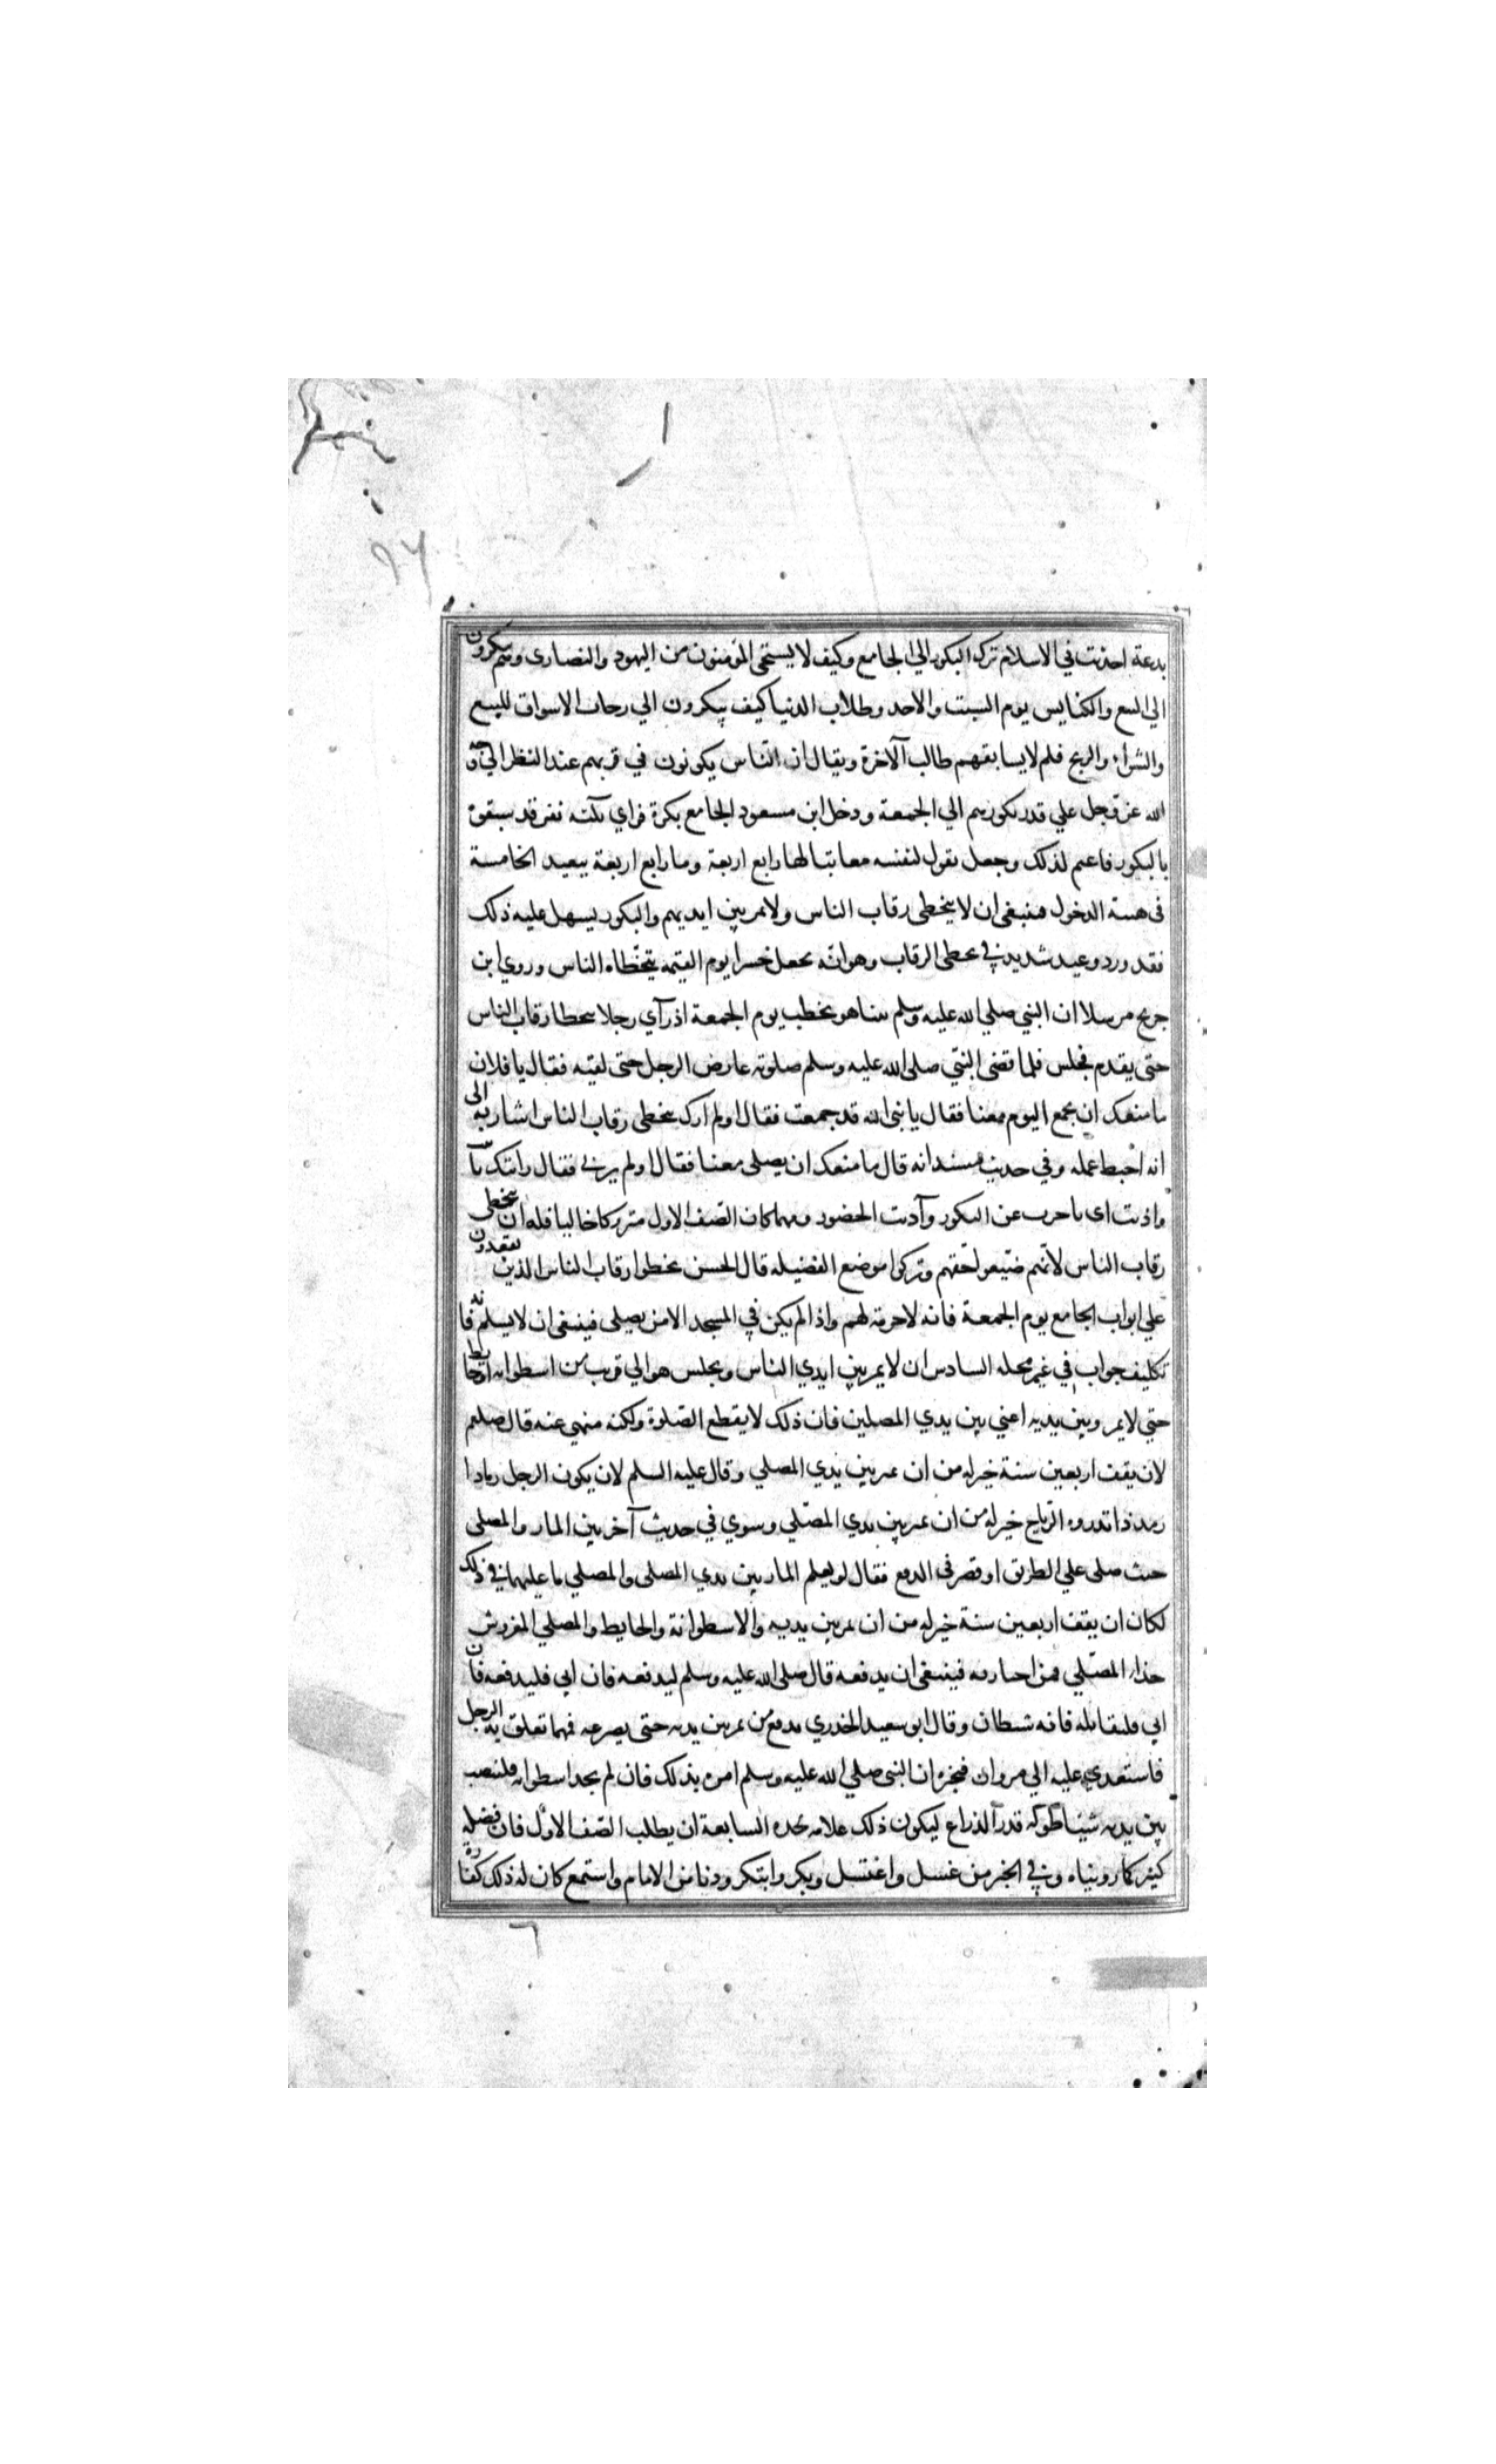 بدعة احذثت في الاسلام ترك البكور الي الجامع وكيف لا يستحي المؤمنون من اليهود والنصاري وهم يبكرون
الي البيع والكنايس يوم السبت والاحد وطلاب الدنيا كيف يبكرون الي رحاب الاسواق للبيع
والشراء والربح فلم لا يسابقهم طالب الآخرة ويقال ان الناس يكونون في قربهم عند النظر الي وجه
الله عز وجل علي قدر بكورهم الي الجمعة ودخل ابن مسعود الجامع بكرة فراي ثلثه نفر قد سبقوه
بالبكور فاعتم لذلك وجعل يقول لنفسه معاتبا لها رابع اربعة وما رابع اربعة ببعيد الخامسة
في هيئة الدخول فينبغي ان لا يتخطى رقاب الناس ولا يمر بين ايديهم والبكور يسهل عليه ذلك
فقد ورد وعيد شديد في تخطي الرقاب وهو انه يجعل جسرا يوم القيمه يتخطاه الناس وروي ابن
جريج مرسلا ان النبي صلي الله عليه وسلم بينا هو يخطب يوم الجمعة اذ رآي رجلا يتخطا رقاب الناس
حتى يقدم فجلس فلما قضى النبي صلى الله عليه وسلم صلوته عارض الرجل حتى لقيه فقال يا فلان
ما منعك ان تجمع اليوم معنا فقال يا نبي الله قد جمعت فقال اولم ارك تتخطى رقاب الناس اشار به الى
انه احبط عمله وفي حديث مسند انه قال ما منعك ان يصلى معنا فقال اولم يرني فقال رايتك تانيت
واذيت اى تاخرت عن البكور وآذيت الحضور ومهما كان الصف الاول متركا خاليا فله ان يتخطى
رقاب الناس لانهم ضيعو لحقهم وتركوا موضع الفضيله قال الحسن تخطوا رقاب الناس الذين يقعدون
علي ابواب الجامع يوم الجمعة فانه لا حرمة لهم واذا لم يكن في المسجد الا من يصلى فينبغى ان لا يسلم فانه
تكليف جواب في غير محله السادس ان لا يمر بين ايدي الناس ويجلس هو الي قرب من اسطوانه او حايط
حتي لا يمر وبين يديه اعني بين يدي المصلين فان ذلك لا يقطع الصلوة ولكنه منهي عنه قال صلعم
لان يقف اربعين سنة خير له من ان يمر بين يدي المصلي وقال عليه السلم لان يكون الرجل رمادا
رمددا تذروه الرياح خير له من ان يمر بين يدي المصلي وسوي في حديث آخر بين المار والمصلى
حيث صلى علي الطريق او قصر في الدفع فقال لو يعلم المار بين يدي المصلى والمصلي ما عليهما في ذلك
لكان ان يقف اربعين سنة خير له من ان يمر بين يديه والاسطوانة والحايط والمصلي المفروش
حذاء المصلي فمن اجتاز به فينبغى ان يدفعه قال صلى الله عليه وسلم ليدفعه فان ابي فليدفعه فان
ابي فليقاتله فانه شيطان وقال ابو سعيد الخدري يدفع من يمر بين يديه حتى يصرعه فهما تعلق به الرجل
فاستعدي عليه الي مروان فيخبره ان النبى صلي الله عليه وسلم امره بذلك فان لم يجد اسطوانه فلينصب
بين يديه شيئا طوله قدر الذراع ليكون ذلك علامه لحده السابعة ان يطلب الصف الاول فان فضله
كثير كما رويناه وفي الخبر من غسل واغتسل وبكر وابتكر ودنا من الامام واستمع كان له ذلك كفارة